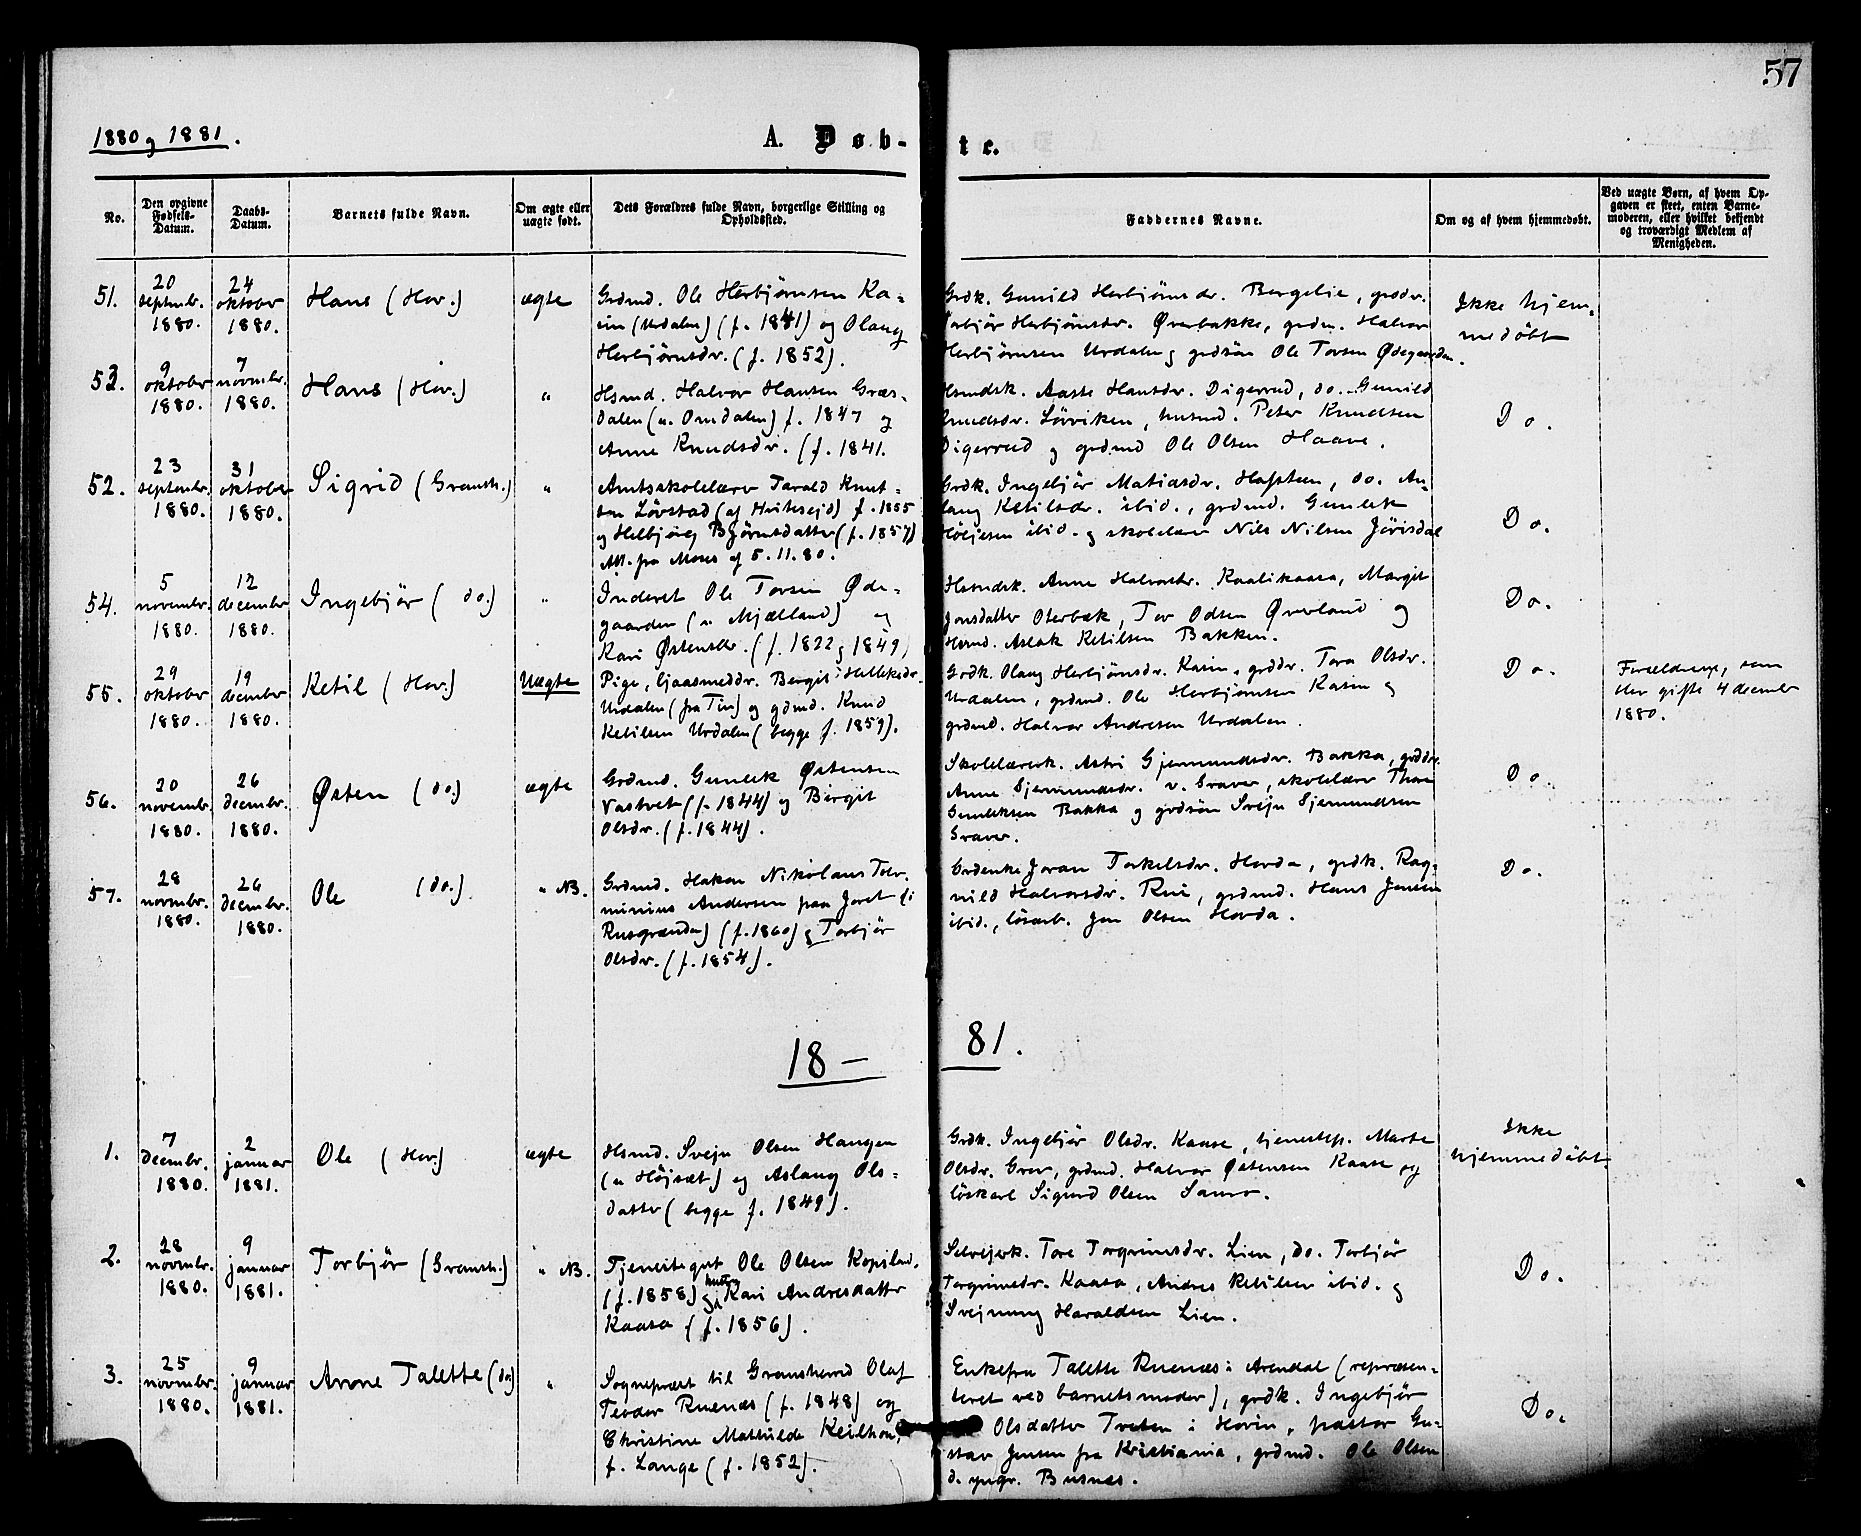 57
1880 og 1881.
A. Døb-
te.
No.
Den opgivne Fødsels-Datum.
Daabs-Datum.
Barnets fulde Navn.
Om ægte eller uægte født.
Dets Forældres fulde Navn, borgerlige Stilling og Opholdssted.
Faddernes Navne.
Om og af hvem hjemmedøbt.
Ved uægte Børn, af hvem Op-
gaven er skeet, enten Barne-
moderen, eller hvilket bekjendt
og troværdigt Medlem af
Menigheden.
51.
20 septmbr. 1880.
24 oktobr 1880.
Hans (Hov.)
ægte
Grdmd. Ole Herbjørnsen Ka-
sin (Urdalen) (f. 1841) og Olaug
Herbjørnsdr. (f. 1852).
Grdk. Gunild Herbjørnsdr. Bergelie, grddr.
Torbjør Herbjørnsdr. Øverbakke, grdm. Halvor
Herbjørnsen Urdalen og grdsøn Ole Torsen Ødegaarden.
Ikke hjem-
medöbt
53.
9 oktobr 1880.
7 novmbr. 1880.
Hans (Hov.)
"
Hsmd. Halvor Hansen Græs-
dalen (u. Omdalen) f. 1847 og
Anne Knudsdr. (f. 1841.
Hsmdsk. Aaste Hansdr. Digerud, do. Gunild
Knudsdr. Lövviken, husmd. Peter Knudsen
Digerud og grdmd Ole Olsen Haave.
Do.
52.
23 septembr. 1880.
31 oktober 1880.
Sigrid (Gransh.)
"
Amtsskolelærer Tarald Knut-
sen Lövstad (af Hvitesejd) f. 1855
og Helbjørg Bjørnsdatter (f. 1857)
Att. fra Moses af 5.11.80.
Grdk. Ingebjör Matiasdr. Hafsten, do. As-
laug Ketilsdr. ibid., grdmd. Gunlek
Höljesen ibid. og skolelærer Nils Nilsen Jörisdal
Do.
54.
5 novembr. 1880.
12 decembr 1880.
Ingebjør (do.)
"
Inderst Ole Torsen Øde-
gaarden (u Mjælland) og
Kari Østensdr. (f. 1822 og 1849)
Hsmdsk. Anne Halvorsdr. Kaalikaasa, Margit
Jonsdatter Oterbæk, Tor Odsen Øverland og
Hsmd. Aslak Ketilsen Bakken.
Do.
55.
29 oktobr 1880.
19 decembr 1880.
Ketil (Hov.)
Uægte
Pige, ljaasmeddr. Birgit Helleksdr.
Urdalen (fra Tin) og gdmd. Knud
Ketilsen Urdalen (begge f. 1859).
Grdk. Olaug Herbjørnsdr. Kasin, grddr. Tora Olsdr.
Urdalen, grdmd. Ole Herbjørnsen Kasin og
grdmd. Halvor Andresen Urdalen.
Do.
Forældrene, som
blev gifte 4 decembr
1880.
56.
20 novembr. 1880.
26 decmbr. 1880.
Østen (do.)
ægte
Grdmd. Gunlek Østensen
Vastveit (f. 1844) og Birgit
Olsdr. (f. 1844).
Skolelærerk. Astri Gjermundsdr. Bakka, grddr.
Anne Gjermundsdr. v. Graver, skolelærer Thore
Gunleksen Bakka og grdsøn Svejn Gjermundsen
Graver.
Do.
57.
28 novmbr. 1880.
26 decmbr. 1880.
Ole (do.)
" NB.
Grdmd. Hakon Nikolaus
Andersen paa Joret (i
Rusgrænden) (f. 1860) og Torbjør
Olsdr. (f. 1854).
Grdenke Joran Torkelsdr. Hovda, grdk. Rag-
nild Halvorsdr. Rui, grdmd. Hans Jensen
ibid., lösarb. Jon Olsen Hovda.
Do.
18 — 81.
1.
7 decmbr. 1880.
2 januar 1881.
Ole (Hov)
ægte
Hsmd. Svejn Olsen Haugen
(u Höjsæt) og Aslaug Ols-
datter (begge f. 1849).
Grdk. Ingebjör Olsdr. Kaase, tjenestep. Marte
Olsdr. Grov, grdmd. Halvor Østensen Kaase og
löskarl Sigurd Olsen Samo.
Ikke
hjemmedöbt.
2.
28 novmbr. 1880.
9 januar 1881.
Torbjør (Gransh.)
" NB.
Tjenestegut Ole Olsen Kopsland
(f. 1858) og hustru Kari Andresdatter
Kaasa (f. 1856).
Selvejerk. Tore Torgrimsdr. Lien, do. Torbjör
Torgrimsdr. Kaasa, Andres Ketilsen ibid. og
Svejnung Haraldsen Lien.
Do.
3.
25 novmbr. 1880.
9 januar 1881.
Anne Talette (do)
"
Sogneprest til Gransherred Olaf
Teodor Ruenæs (f. 1848) og
Christine Mathilde Keilhau,
f. Lange (f. 1852).
Enkefru Talette Ruenæs i Arendal (repræsen-
teret ved barnets moder), grdk. Ingebjør
Olsdatter Tveten i Hovin, pastor Gu-
stav Jensen fra Kristiania, grdmd. Ole Olsen
d. yngr. Busnes.
Do.